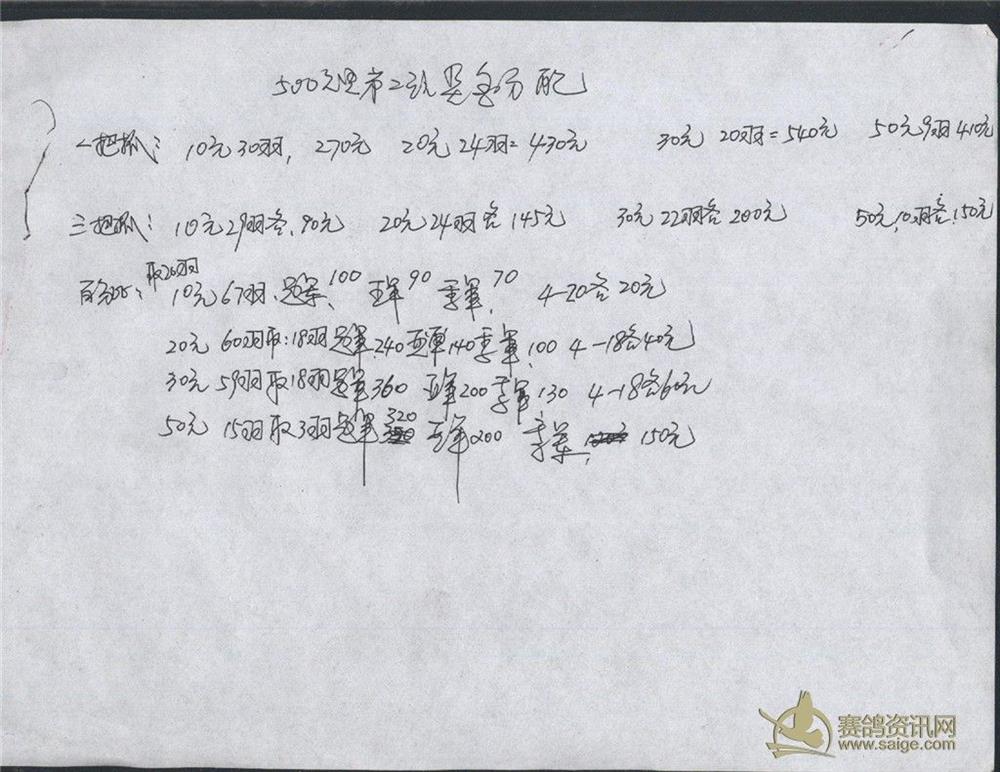 500元里第二站奖金分配
一把抓: 10元30羽, 270元 20元24羽=430元 30元 20羽=540元 50元9羽410元
三把抓: 10元29羽各.90元 20元24羽各145元 30元22羽各200元 50元,10羽各.150元
取20羽
10元67羽. 冠军.100 亚军90 季军.70 4-20各20元
20元 60羽取:18羽冠军240亚军140季军.100 4-18各40元
30元 59羽取18羽冠军360 亚军200季军130 4-18各60元
50元 15羽取3羽冠军320 亚军200 季军, 150元
赛鸽资讯网
www.saige.com